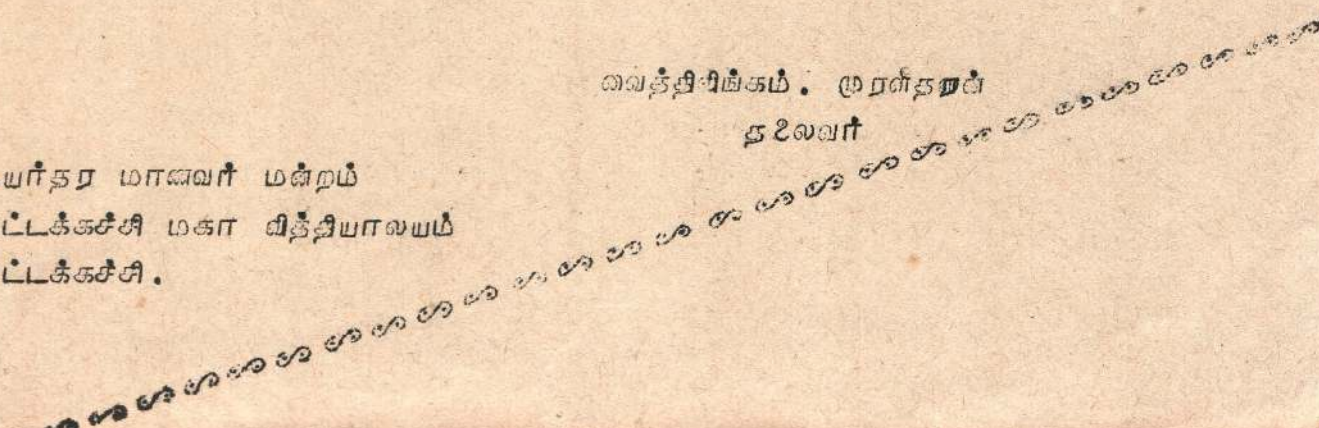 வைத்திலிங்கம். முரளிதரன்
தலைவர்
யர்தர மாணவர் மன்றம்
ட்டக்கச்சி மகா வித்தியாலயம்
ட்டக்கச்சி.